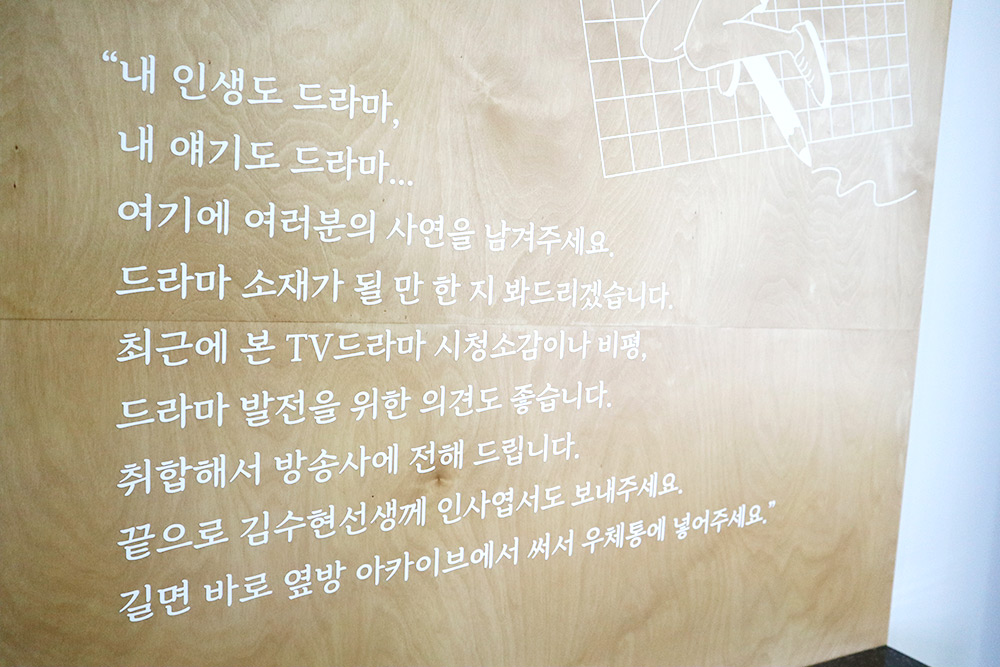 “내 인생도 드라마,
내 얘기도 드라마...
여기에 여러분의 사연을 남겨주세요.
드라마 소재가 될 만 한 지 봐드리겠습니다.
최근에 본 TV드라마 시청소감이나 비평,
드라마 발전을 위한 의견도 좋습니다.
취합해서 방송사에 전해 드립니다.
끝으로 김수현선생께 인사엽서도 보내주세요.
길면 바로 옆방 아카이브에서 써서 우체통에 넣어주세요.”